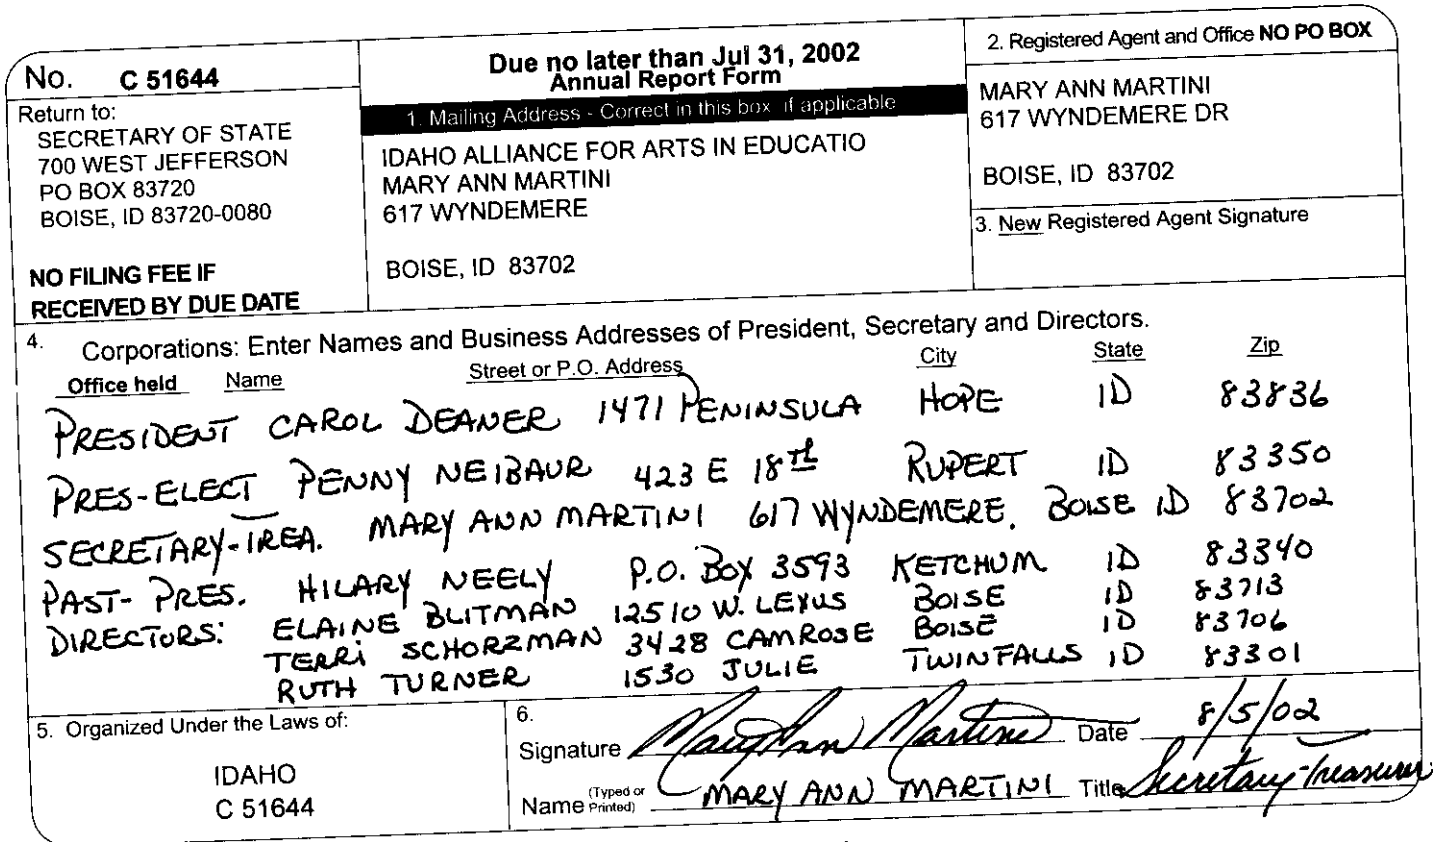 No. C 51644
Return to:
SECRETARY OF STATE
700 WEST JEFFERSON
PO BOX 83720
BOISE, ID 83720-0080
NO FILING FEE IF
RECEIVED BY DUE DATE
Due no later than Jul 31, 2002
Annual Report Form
1. Mailing Address - Correct in this box if applicable
IDAHO ALLIANCE FOR ARTS IN EDUCATIO
MARY ANN MARTINI
617 WYNDEMERE
BOISE, ID 83702
2. Registered Agent and Office NO PO BOX
MARY ANN MARTINI
617 WYNDEMERE DR
BOISE, ID 83702
3. New Registered Agent Signature
4. Corporations: Enter Names and Business Addresses of President, Secretary and Directors.
Office held Name Street or P.O. Address City State Zip
PRESIDENT CAROL DEANER 1471 PENINSULA HOPE ID 83836
PRES-ELECT PENNY NEIBAUR 423 E 18th RUPERT ID 83350
SECRETARY-TREA. MARY ANN MARTINI 617 WYNDEMERE, BOISE ID 83702
PAST-PRES. HILARY NEELY P.O. BOX 3593 KETCHUM ID 83340
DIRECTORS: ELAINE BLITMAN 12510 W. LEXUS BOISE ID 83713
TERRI SCHORZMAN 3428 CAMROSE BOISE ID 83706
RUTH TURNER 1530 JULIE TWIN FALLS ID 83301
5. Organized Under the Laws of:
IDAHO
C 51644
6.
Signature Mary Ann Martini Date 8/5/02
Name (Typed or Printed) MARY ANN MARTINI Title Secretary-Treasurer